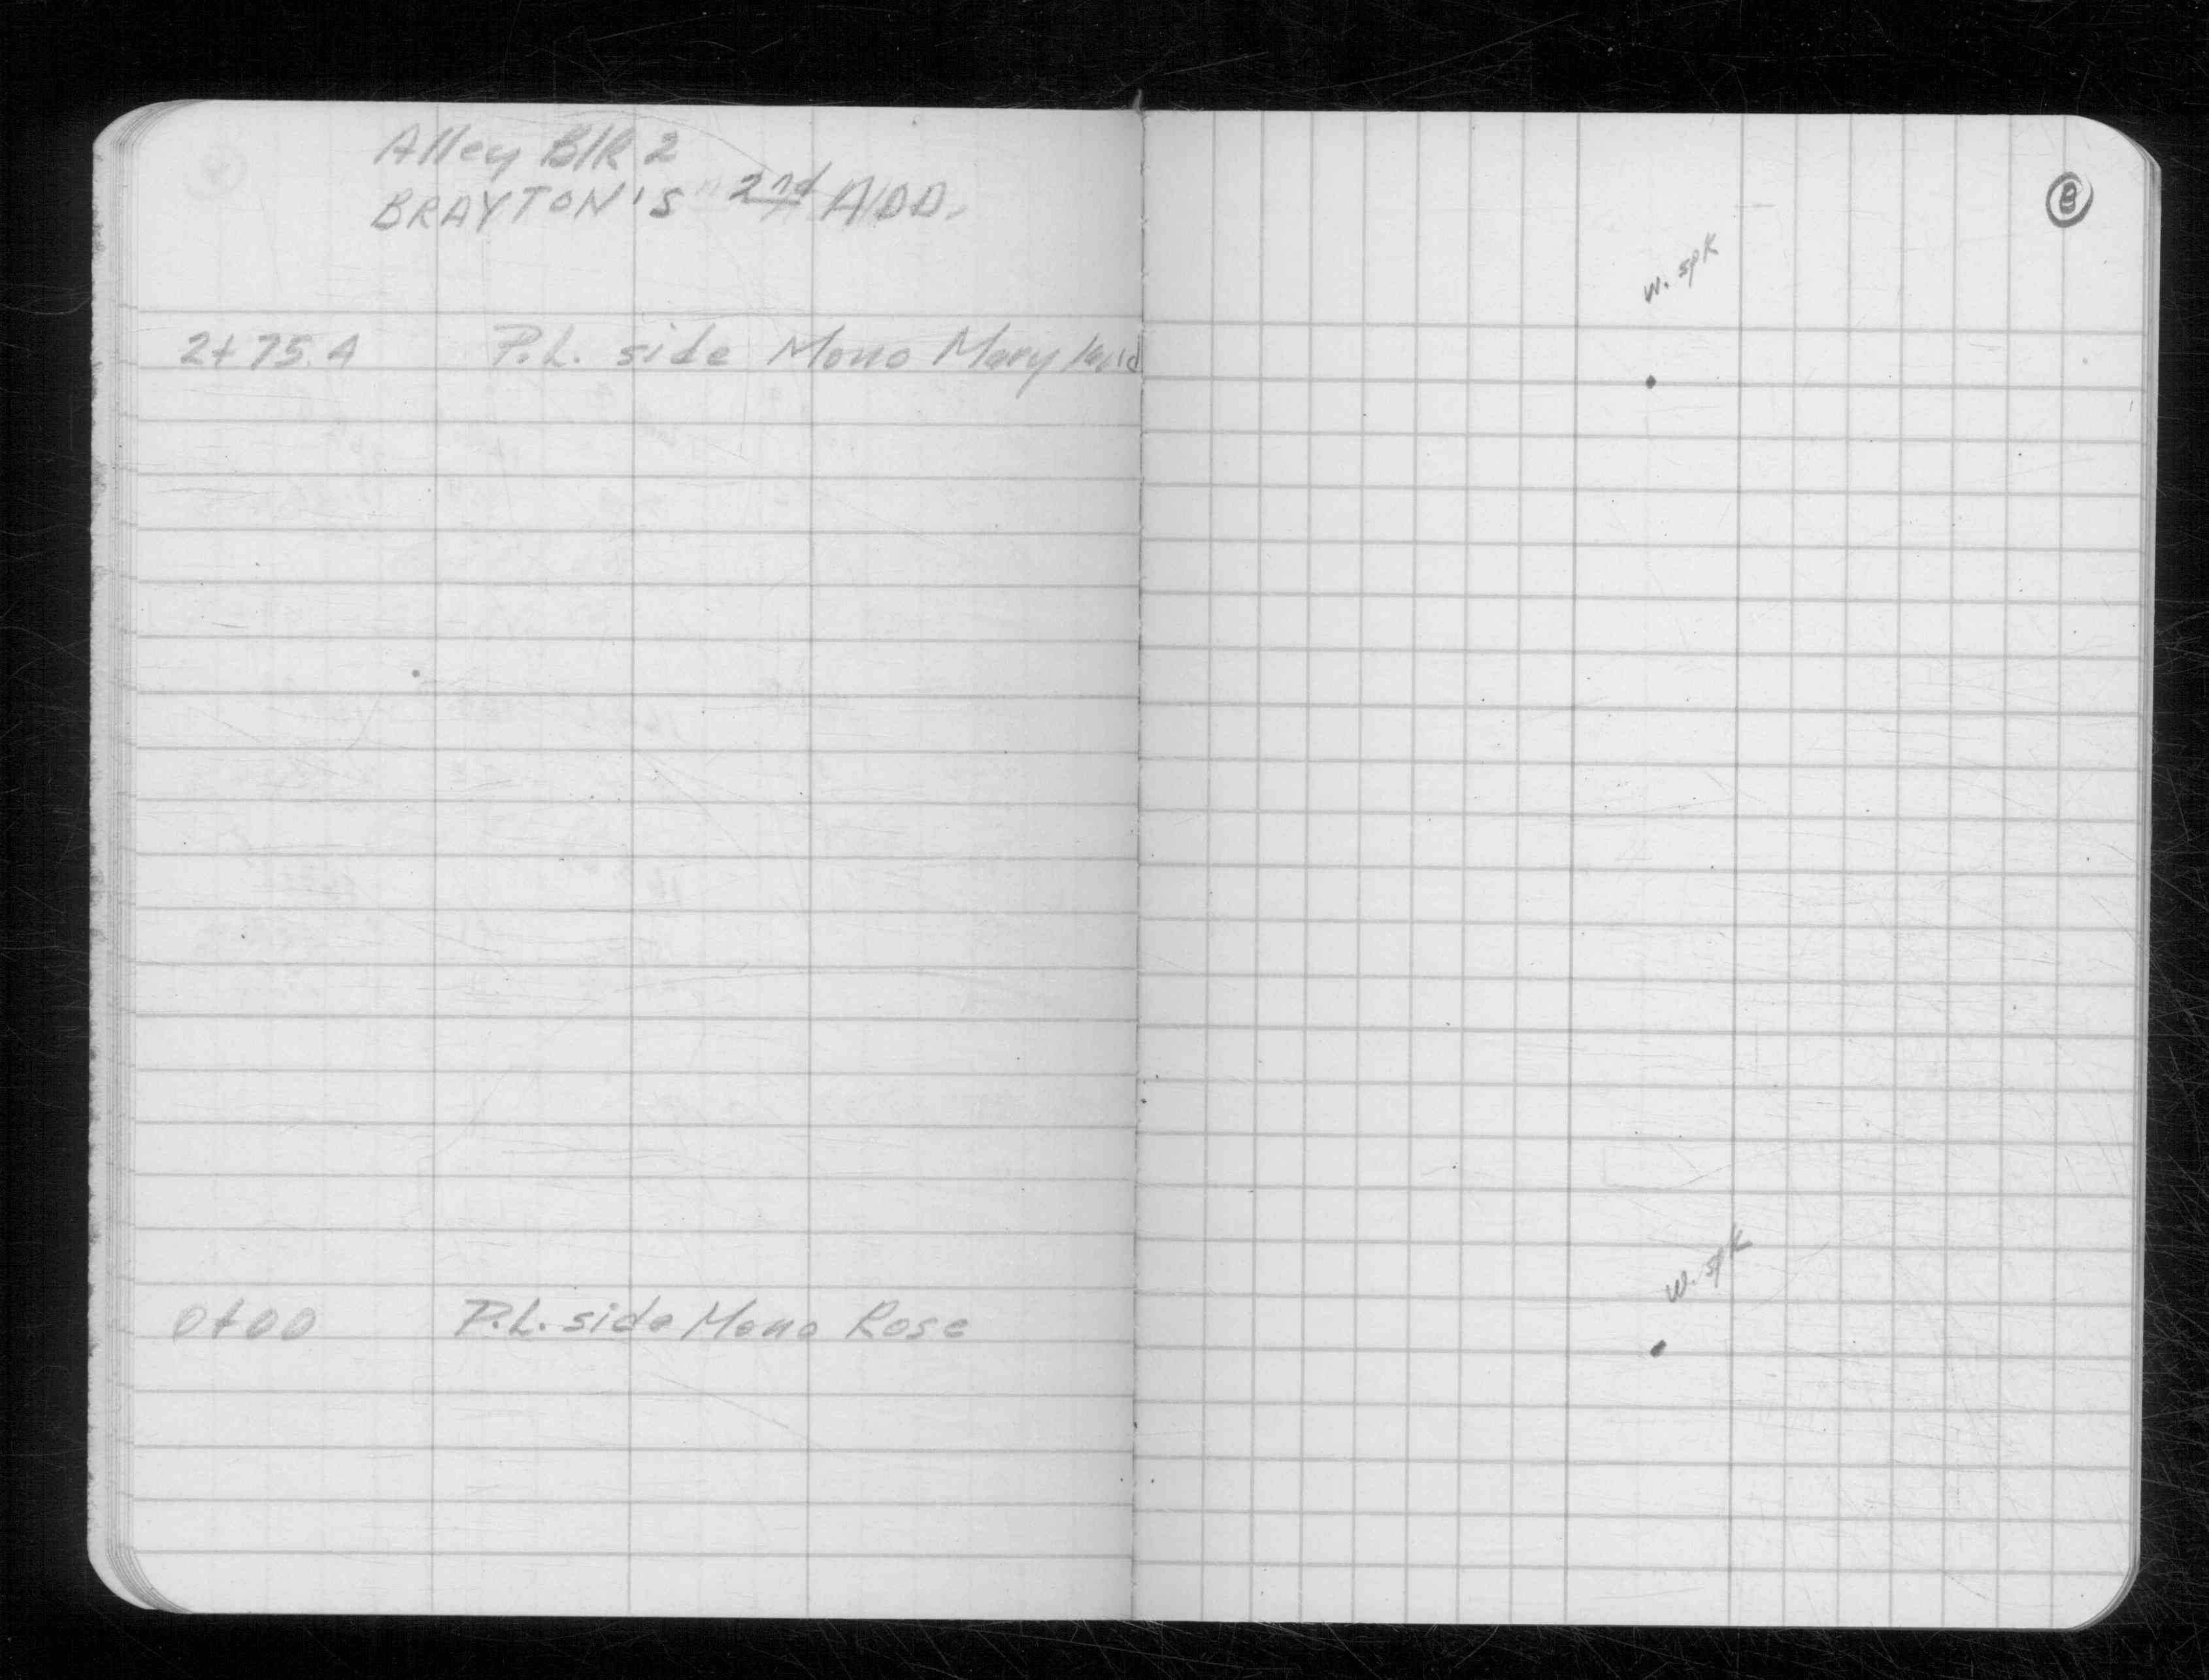 Alley Blk 2
BRAYTON'S 2nd ADD.
2+75.4 P.L. side Mono Maryland
0+00 P.L. side Mono Rose
8
w. spk
w. spk